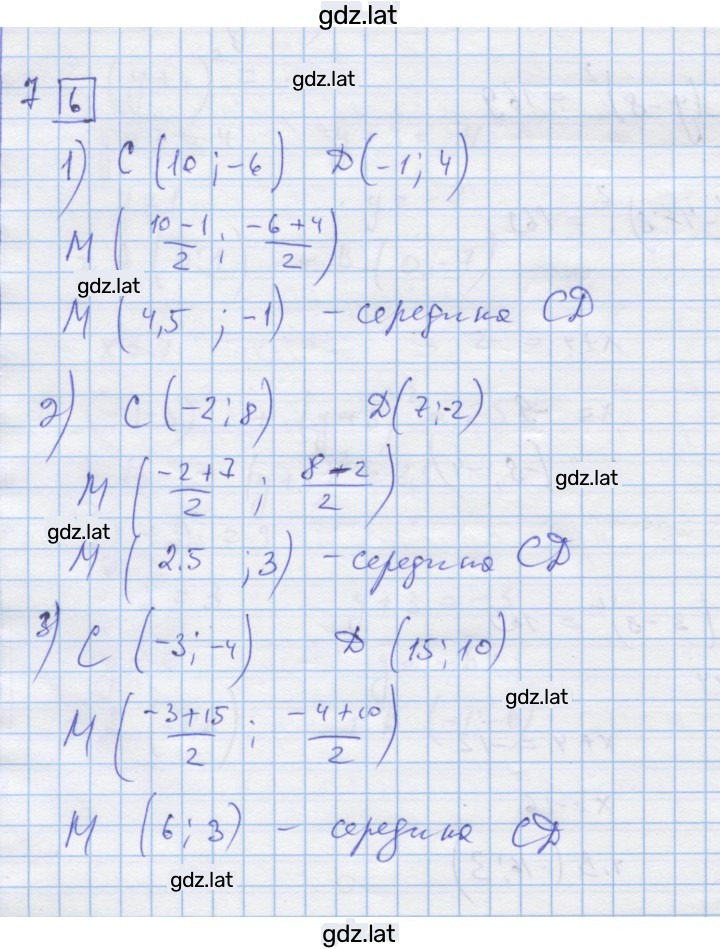 gdz.lat
gdz.lat
7 6
1) C (10 ; -6) D (-1 ; 4)
M ( (10 - 1)/2 ; (-6 + 4)/2 )
gdz.lat
M (4,5 ; -1) - середина CD
2) C (-2 ; 8) D (7 ; -2)
M ( (-2 + 7)/2 ; (8 - 2)/2 )
gdz.lat
gdz.lat
M (2.5 ; 3) - середина CD
3) C (-3 ; -4) D (15 ; 10)
gdz.lat
M ( (-3 + 15)/2 ; (-4 + 10)/2 )
M (6 ; 3) - середина CD
gdz.lat
gdz.lat